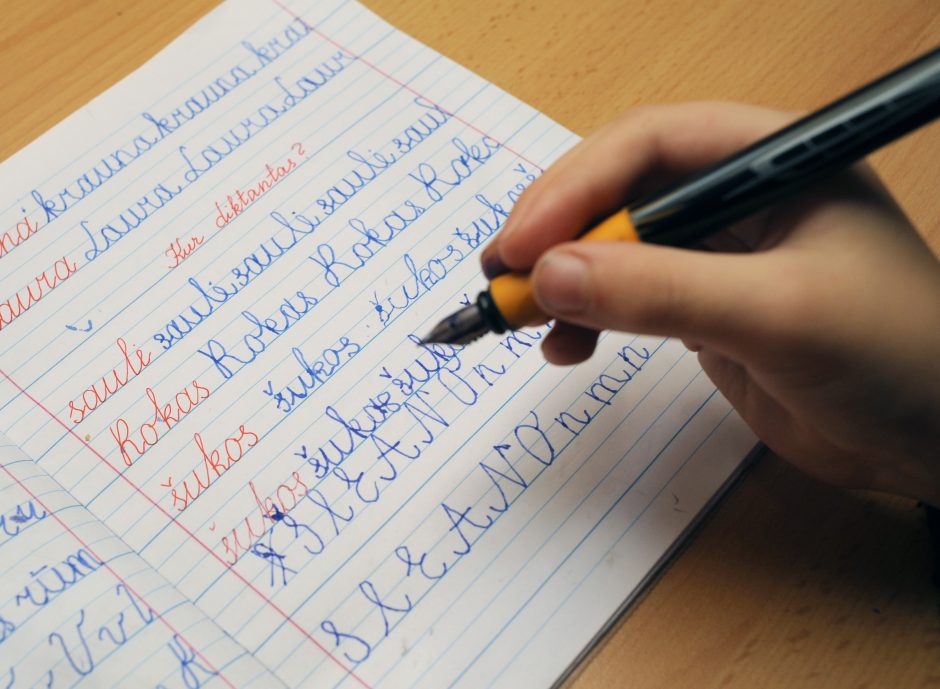 krauna krauna
aura Laura Laura Laur
Kur diktantas?
saulė saulė saulė saulė saul
Rokas Rokas Rokas Rokas Roka
šukos šukos šukos
šukos šukos šuk
S l E A N O n m
S l E A N O n m n
rūm
V v